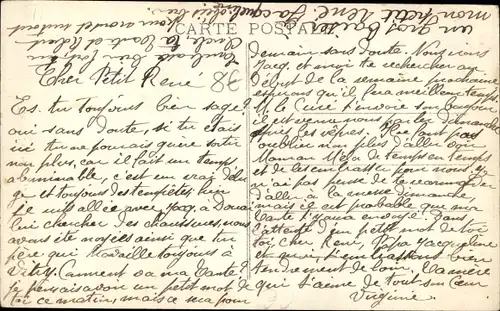 un gros baiser
mon petit René. Jacqueline
CARTE POSTALE
Cher Petit René
8€
Es-tu toujours bien sage?
oui sans doute, si tu étais
ici tu ne pourrais guère sortir
non plus, car il fait un temps
abominable, c'est un vrai
et toujours des tempêtes, hier
je suis allée avec Jacq. à Douai
lui chercher des chaussures, nous
avons été ainsi que ton
père qui travaille toujours à
Vitry. Comment va ma tante?
je pensais avoir un petit mot de
toi ce matin, mais ce sera pour
demain sans doute. Nous irons
Jacq. et moi te rechercher au
début de la semaine prochaine
espérons qu'il fera meilleur temps
M. le Curé t'envoie son bonjour
il est venu nous parler dimanche
après les vêpres. Il ne faut pas
oublier non plus d'aller voir
Maman de temps en temps
et de l'embrasser pour nous. Je
n'ai pas pensé de te recommander
d'aller à la messe dimanche,
mais il est probable que ma
tante t'y aura envoyé. Dans
l'attente d'un petit mot de toi
toi, cher René, Papa, Jacqueline
et moi, t'embrassons bien
tendrement de loin. Ta mère
qui t'aime de tout son cœur
Virginie